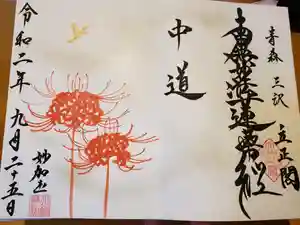 青森 三沢
立正閣
南無妙法蓮華経
中道
令和二年 九月二十五日